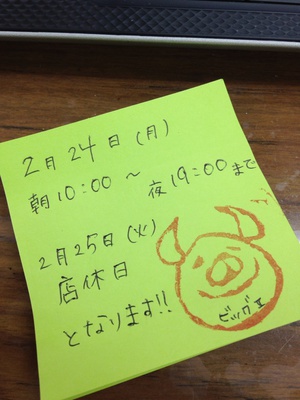 2月24日(月)
朝10:00～夜19:00まで
2月25日(火)
店休日
となります!!
ビッグエ